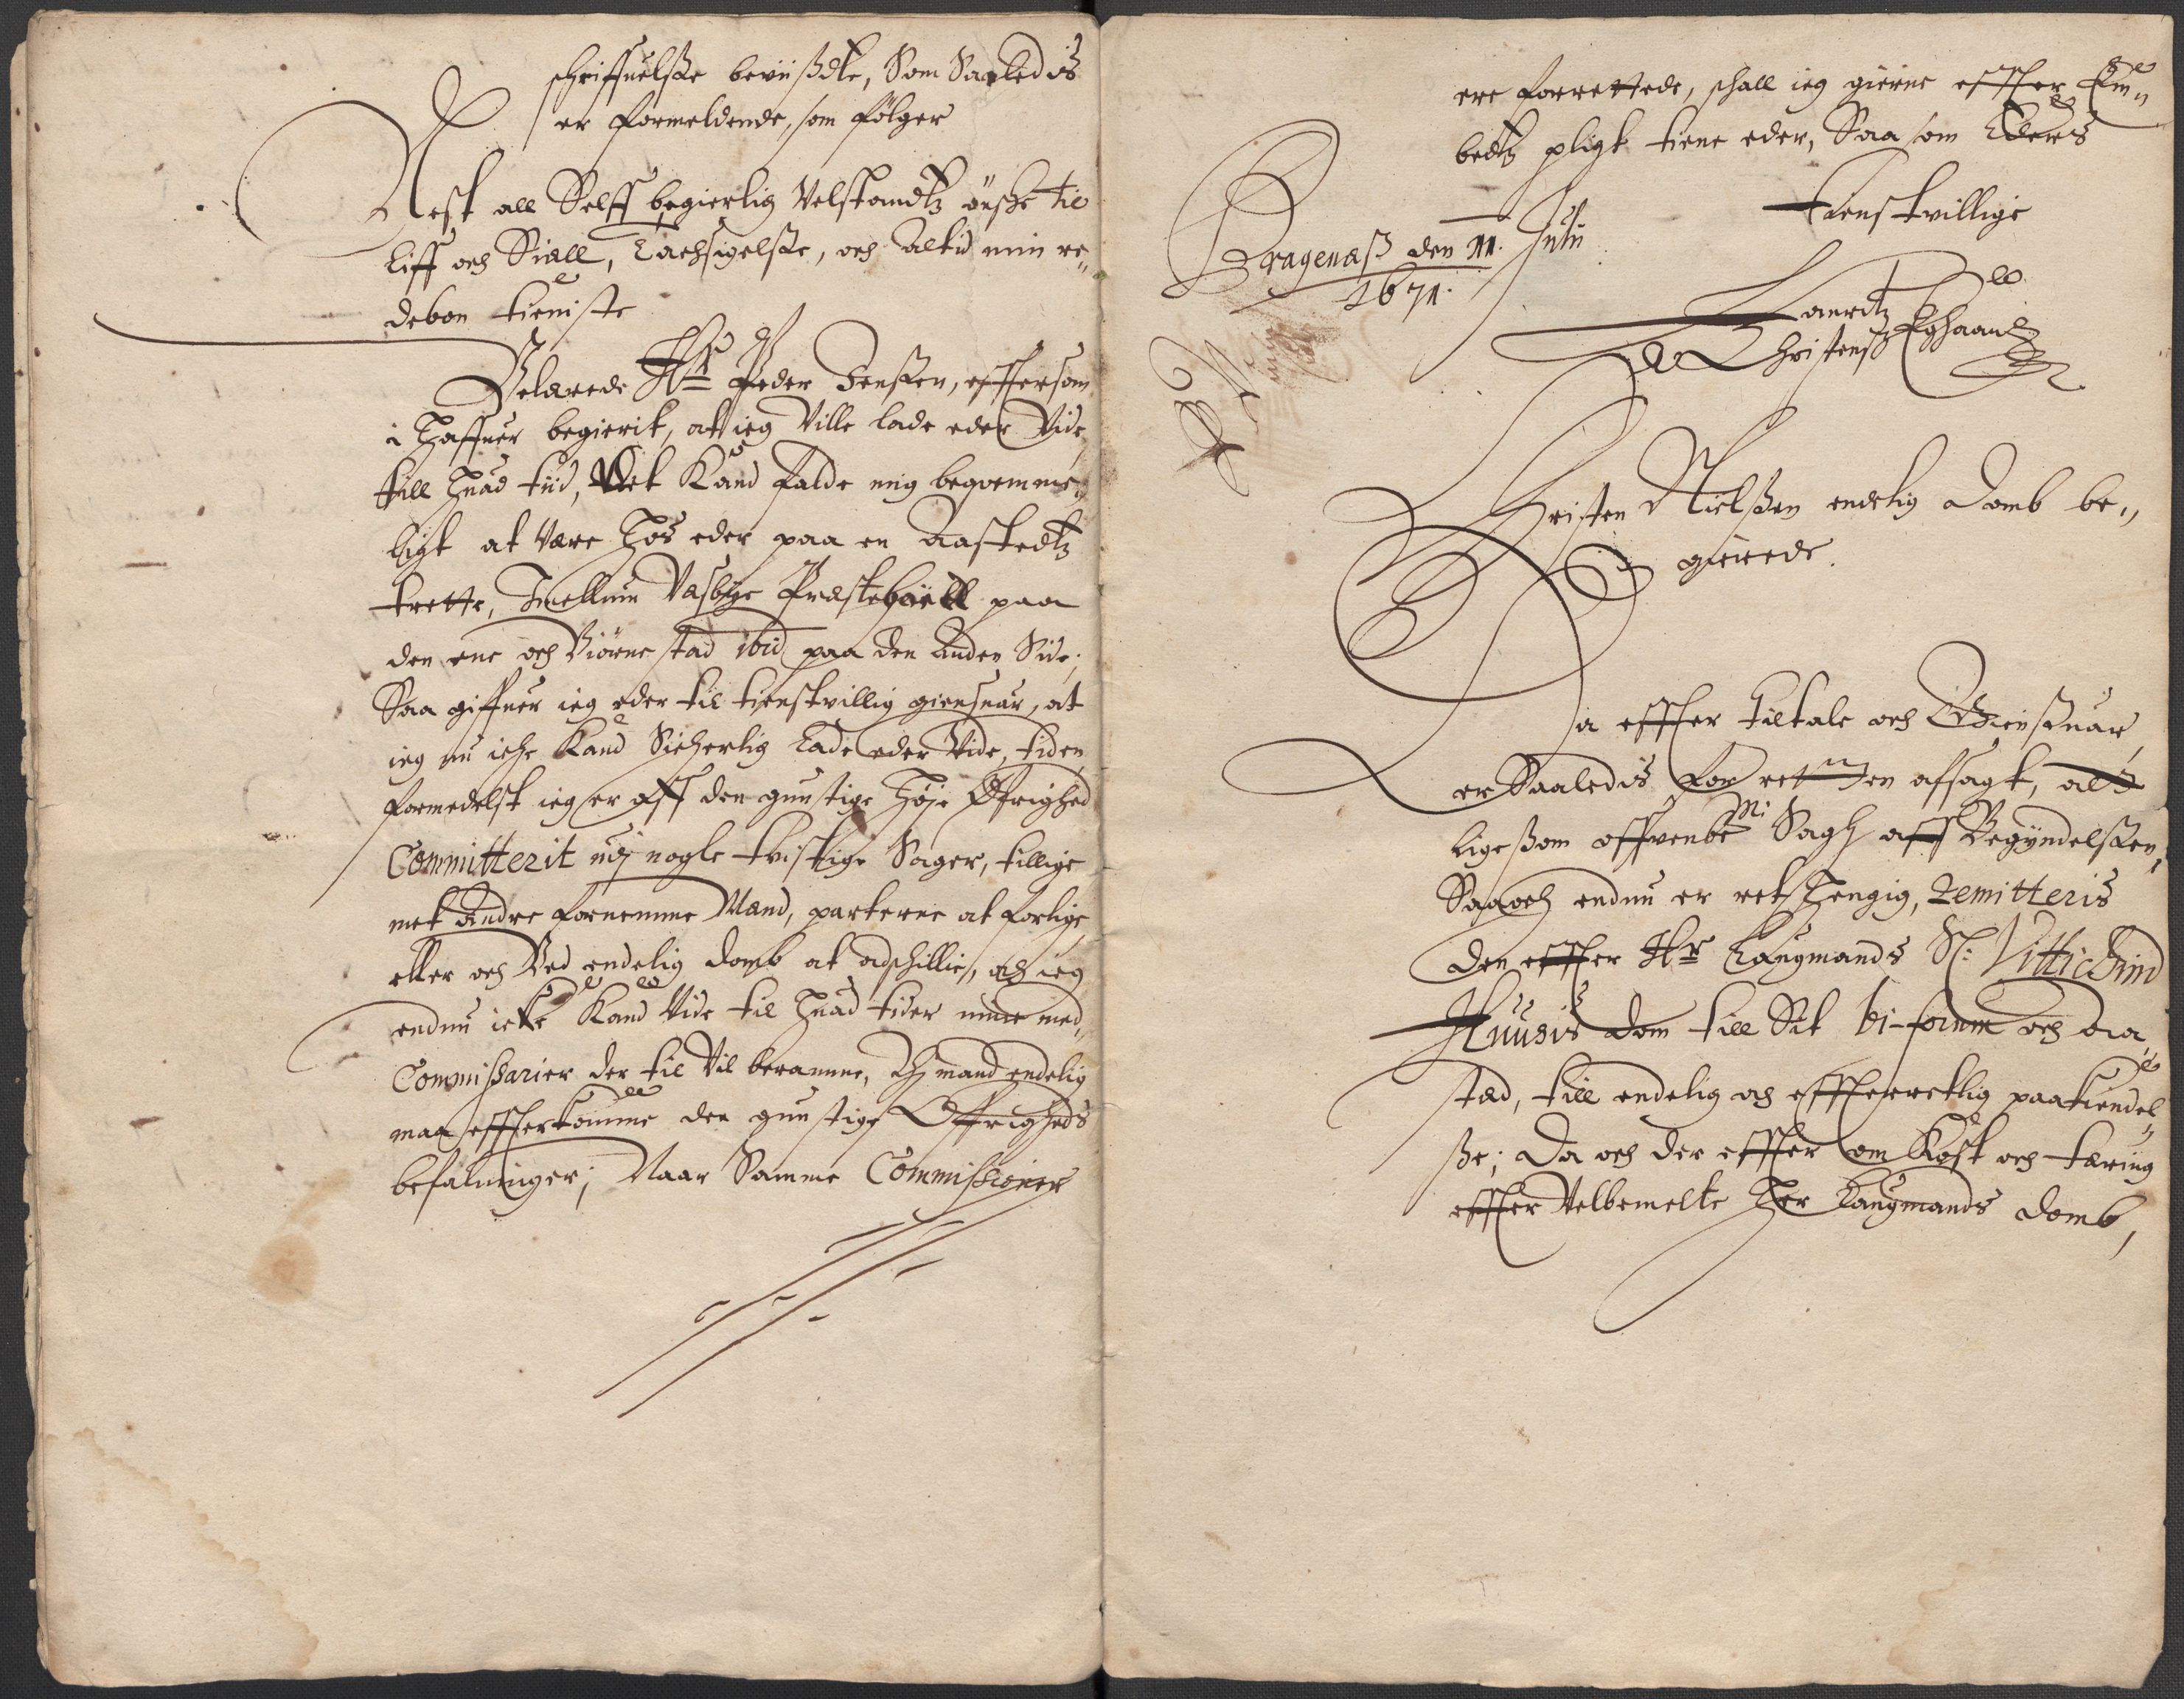 schriffuelße beviißdte, Som Saaledis
er formeldende, som følger
Nest all Selff begierlig Velstandtz ønsche til
Liff och Siæll, Tachsigelße, och altid min re„
debon tieniste
Velærede Hr Peder Jenßen, effter som
i Haffuer begierit, at ieg Ville lade eder Vide,
till huad tiid, Det Kand falde mig beqvemme„
ligt at være Hos eder paa en Aastedtz
trette, Imellum Vasbÿe Præstebøell paa
den ene och Biørnestad ibid paa den Anden Side;
Saa giffuer ieg eder til tienstvillig giensuar, at
ieg nu iche Kand Sicherlig Lade eder Vide, tiden
formedelst ieg er aff den gunstige Høje Øfrighed
Committerit udj nogle tvistige Sager, tillige
met Andre fornemme Mænd, parterne at forlige,
eller och Ved endelig domb at adschillie, och ieg
endnu icke Kand Vide til huad tider mine med„
Commissarier der til Vil beramme, Thj mand endelig
maa effterkomme den gunstige Øffrigheds
befalninger; Naar Samme Commissioner
ere forrettede, schall ieg gierne effter Em„
bedtz pligt tiene eder, Saa som Eders
Tienstvillige
Bragenæß den 11. Julij
1671.
Lauridtz
Christenß
Christen Nielßen endelig domb be„
gierede.
Da effter tiltale och Gienßuar,
er Saaledis for retten afsagt, at
ligeßom offvenbemte Sagh aff Begyndelßen,
Saa och endnu er ret hengig, remitteris
den effter Hr Laugmands Sl: Vittichind
Huusis dom till Sit bi-forum och Aa„
stæd, till endelig och effterretlig paakiendel„
ße; Da och der effter om Kost och tæring
effter Velbemelte Her Laugmands domb,